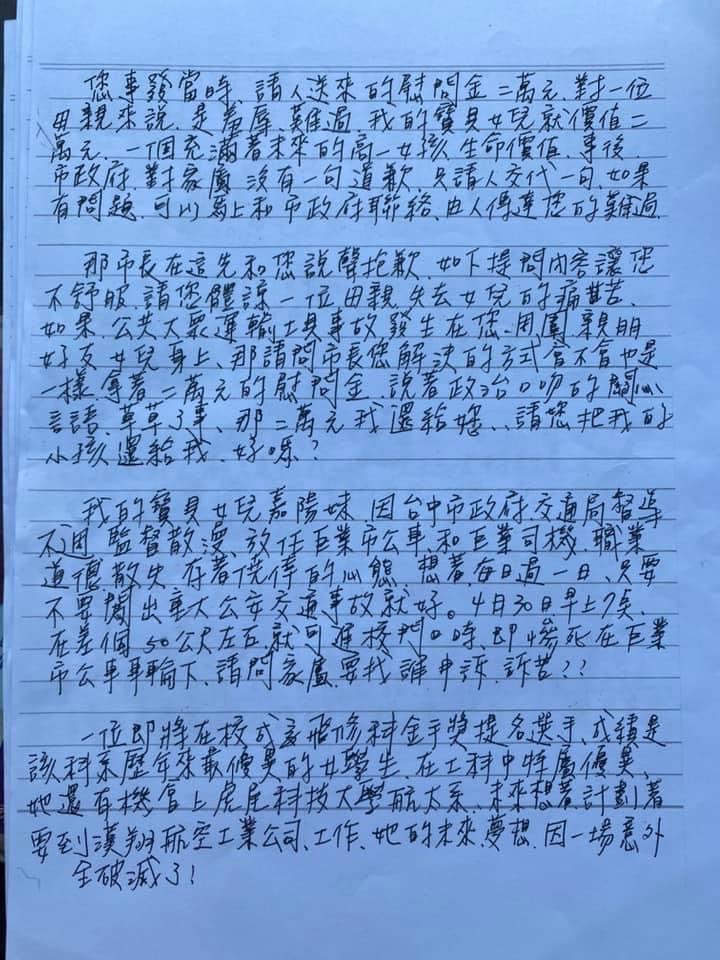 您事發當時、請人送來的慰問金二萬元、對一位
母親來說、是羞辱、難過、我的寶貝女兒就價值二
萬元、一個充滿著未來的高一女孩、生命價值、事後
市政府、對家屬、沒有一句道歉、只請人交代一句、如果
有問題、可以馬上和市政府聯絡、由人傳達您的難過、
那市長在這先和您說聲抱歉、如下提問內容讓您
不舒服、請您體諒一位母親、失去女兒的痛苦、
如果、公共大眾運輸工具事故發生在您、周圍、親朋
好友女兒身上、那請問市長您解決的方式會不會也是
一樣、拿著二萬元的慰問金、說著政治口吻的關心
言語、草草了事、那二萬元我還給妳您、、請您把我的
小孩還給我、好嗎?
我的寶貝女兒嘉陽妹、因台中市政府交通局督導
不週、監督散漫、放任巨業市公車、和巨業司機、職業
道德散失、存著僥倖的心態、想著、每日過一日、只要
不要鬧出重大公安交通事故就好。4月30日早上7點、
在差個50公尺左右、就可進校門口時、即慘死在巨業
市公車車輪下、請問家屬、要找誰申訴、訴苦??
一位即將在校成為飛修科金手獎提名選手、成績是
該科系歷年來最優異的女學生、在工科中特屬優異、
她還有機會上虎尾科技大學航太系、未來想著、計劃著
要到漢翔航空工業公司、工作、她的未來、夢想、因一場意外
全破滅了!